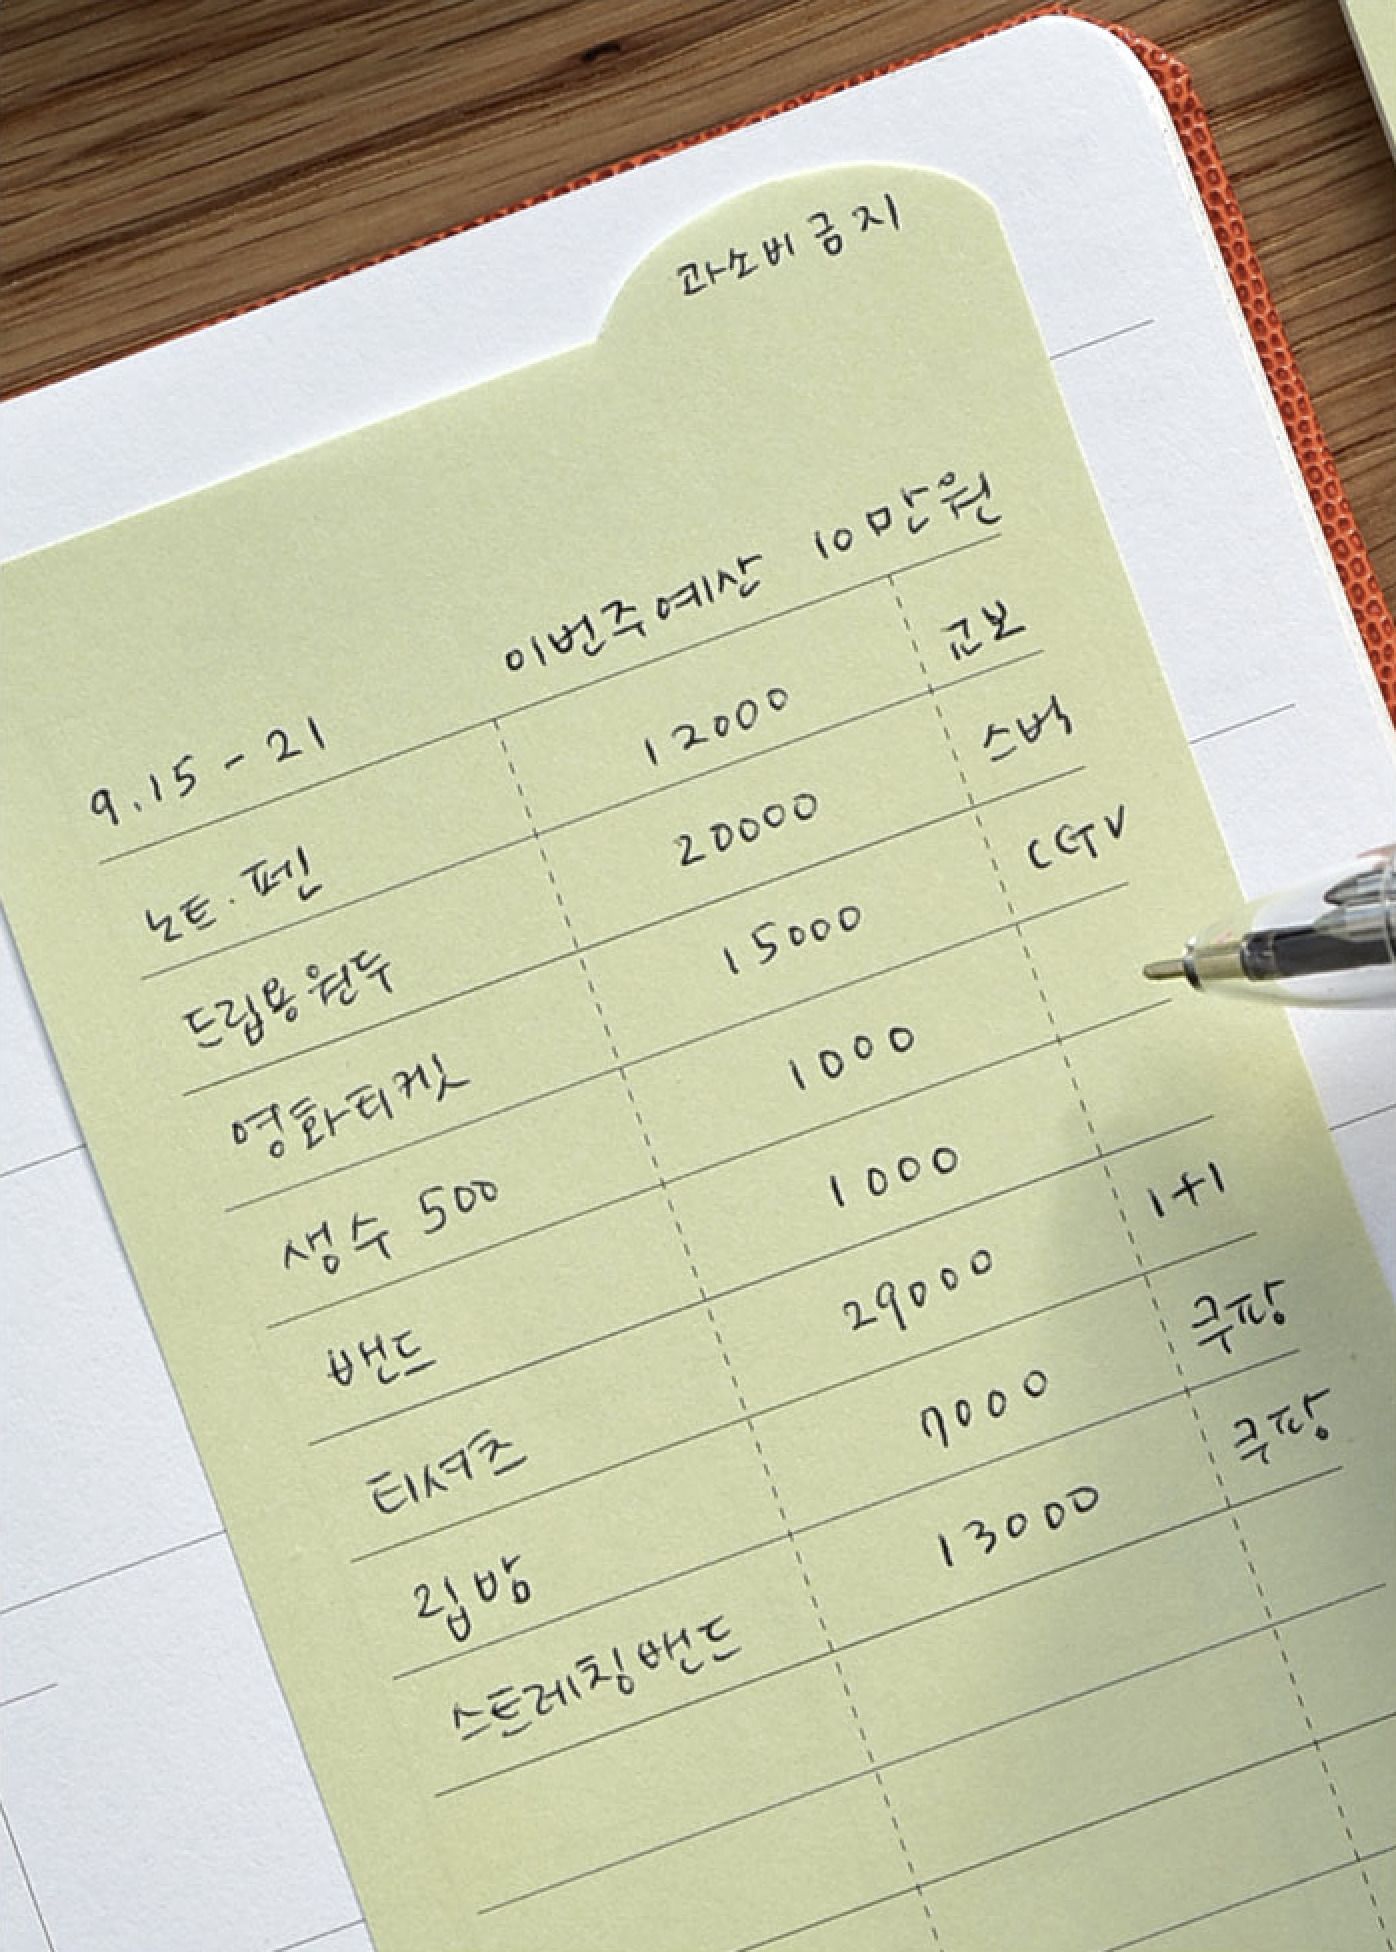 과소비금지
9.15-21 이번주예산 10만원
노트.펜 12000 교보
드립용원두 20000 스벅
영화티켓 15000 CGV
생수 500 1000
밴드 1000
티셔츠 29000 1+1
립밤 7000 쿠팡
스트레칭밴드 13000 쿠팡